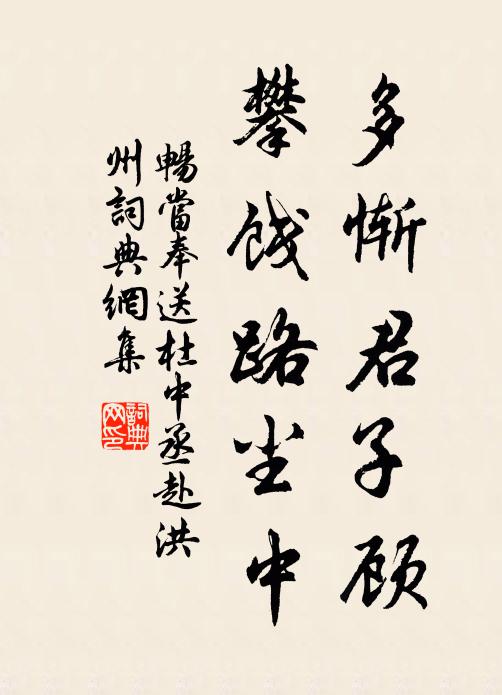 多慚君子顾
攀饯路尘中
暢當奉送杜中丞赴洪
州詞典網集
詞典网印